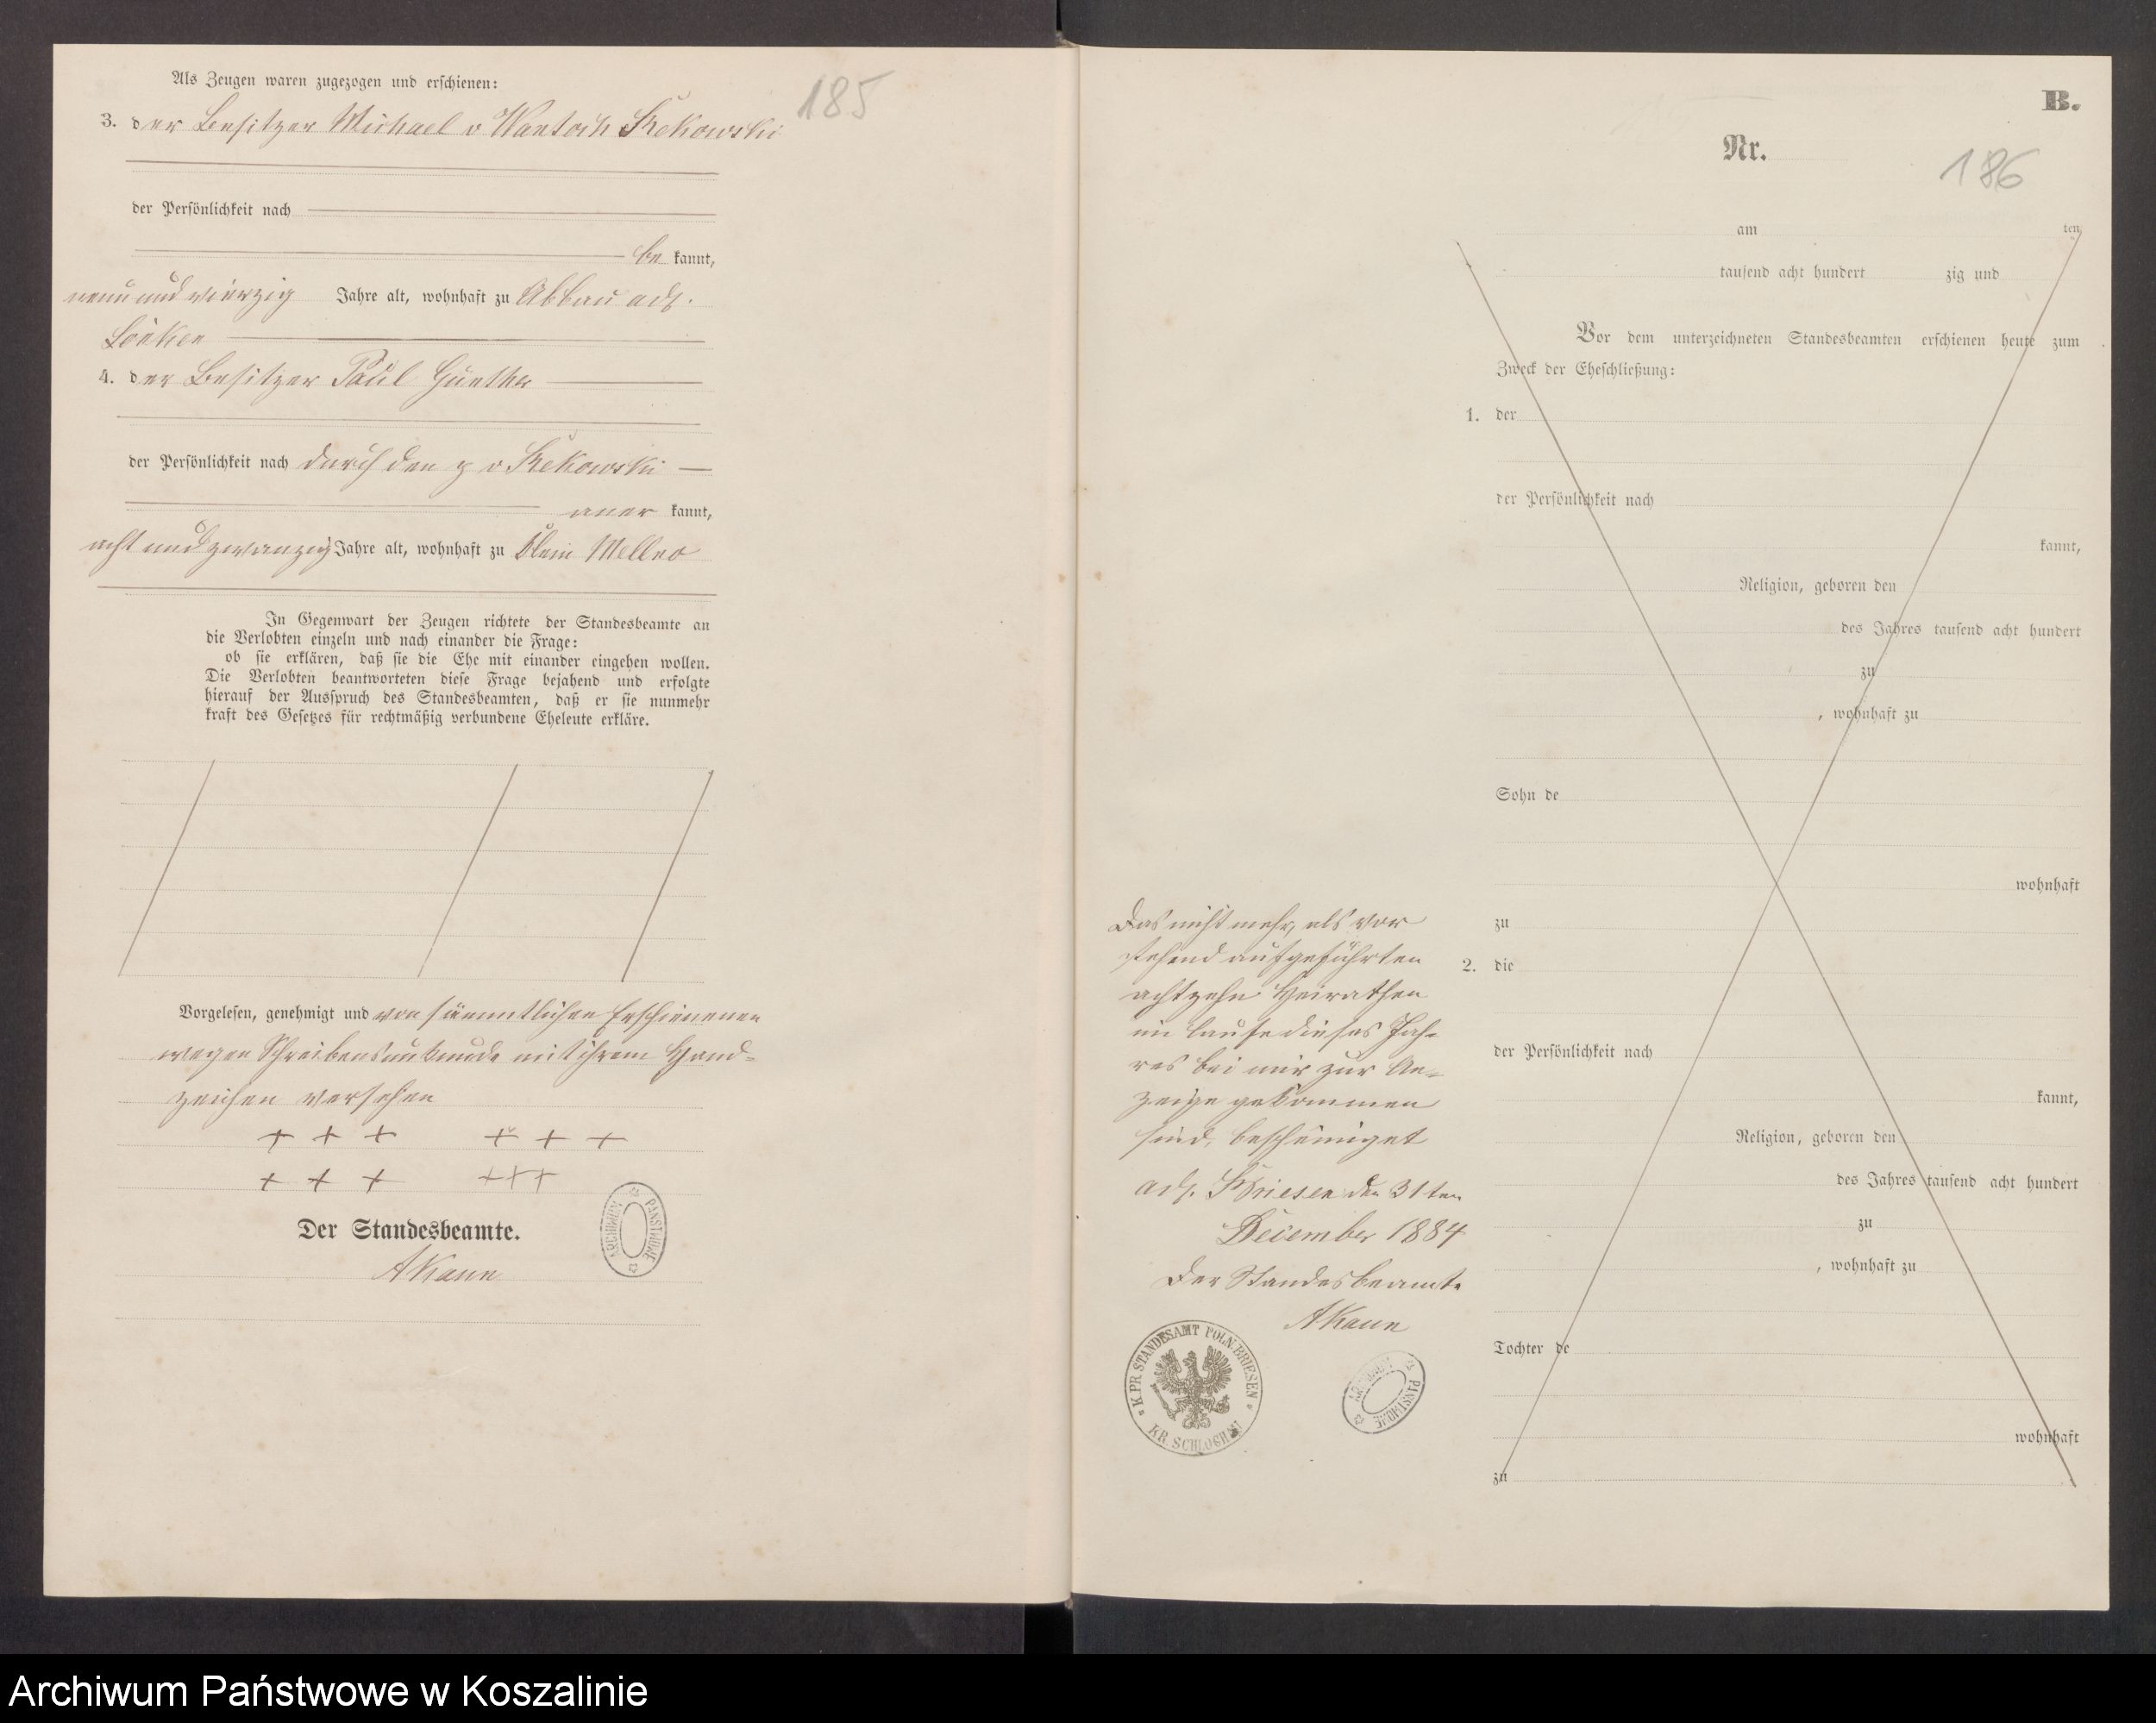 185
Als Zeugen waren zugezogen und erschienen:
3. der Besitzer Michael v Wantoch Rekowski
der Persönlichkeit nach
be kannt,
neun und vierzig Jahre alt, wohnhaft zu Abbau adl.
4. der Besitzer Paul Günther
der Persönlichkeit nach durch den p v Rekowski
aner kannt,
acht und zwanzig Jahre alt, wohnhaft zu Klein
In Gegenwart der Zeugen richtete der Standesbeamte an
die Verlobten einzeln und nach einander die Frage:
ob sie erklären, daß sie die Ehe mit einander eingehen wollen.
Die Verlobten beantworteten diese Frage bejahend und erfolgte
hierauf der Ausspruch des Standesbeamten, daß er sie nunmehr
kraft des Gesetzes für rechtmäßig verbundene Eheleute erkläre.
Vorgelesen, genehmigt und von sämmtlichen Erschienenen
wegen Schreibensunkunde mit ihrem Hand=
zeichen versehen
+ + + + + +
+ + + +++
Der Standesbeamte.
ARCHIWUM PAŃSTWOWE
B.
Nr.
186
am ten
tausend acht hundert zig und
Vor dem unterzeichneten Standesbeamten erschienen heute zum
Zweck der Eheschließung:
1. der
der Persönlichkeit nach
kannt,
Religion, geboren den
des Jahres tausend acht hundert
zu
, wohnhaft zu
Sohn de
wohnhaft
zu
2. die
der Persönlichkeit nach
kannt,
Religion, geboren den
des Jahres tausend acht hundert
zu
, wohnhaft zu
Tochter de
wohnhaft
zu
Das nicht mehr, als vor
stehend aufgeführten
achtzehn Heirathen
im Laufe dieses Jah=
res bei mir zur An=
zeige gekommen
sind, bescheiniget
adl. Briesen den 31ten
December 1884
Der Standesbeamte
K. PR. STANDESAMT POLN. BRIESEN
KR. SCHLOCHAU
ARCHIWUM PAŃSTWOWE
Archiwum Państwowe w Koszalinie